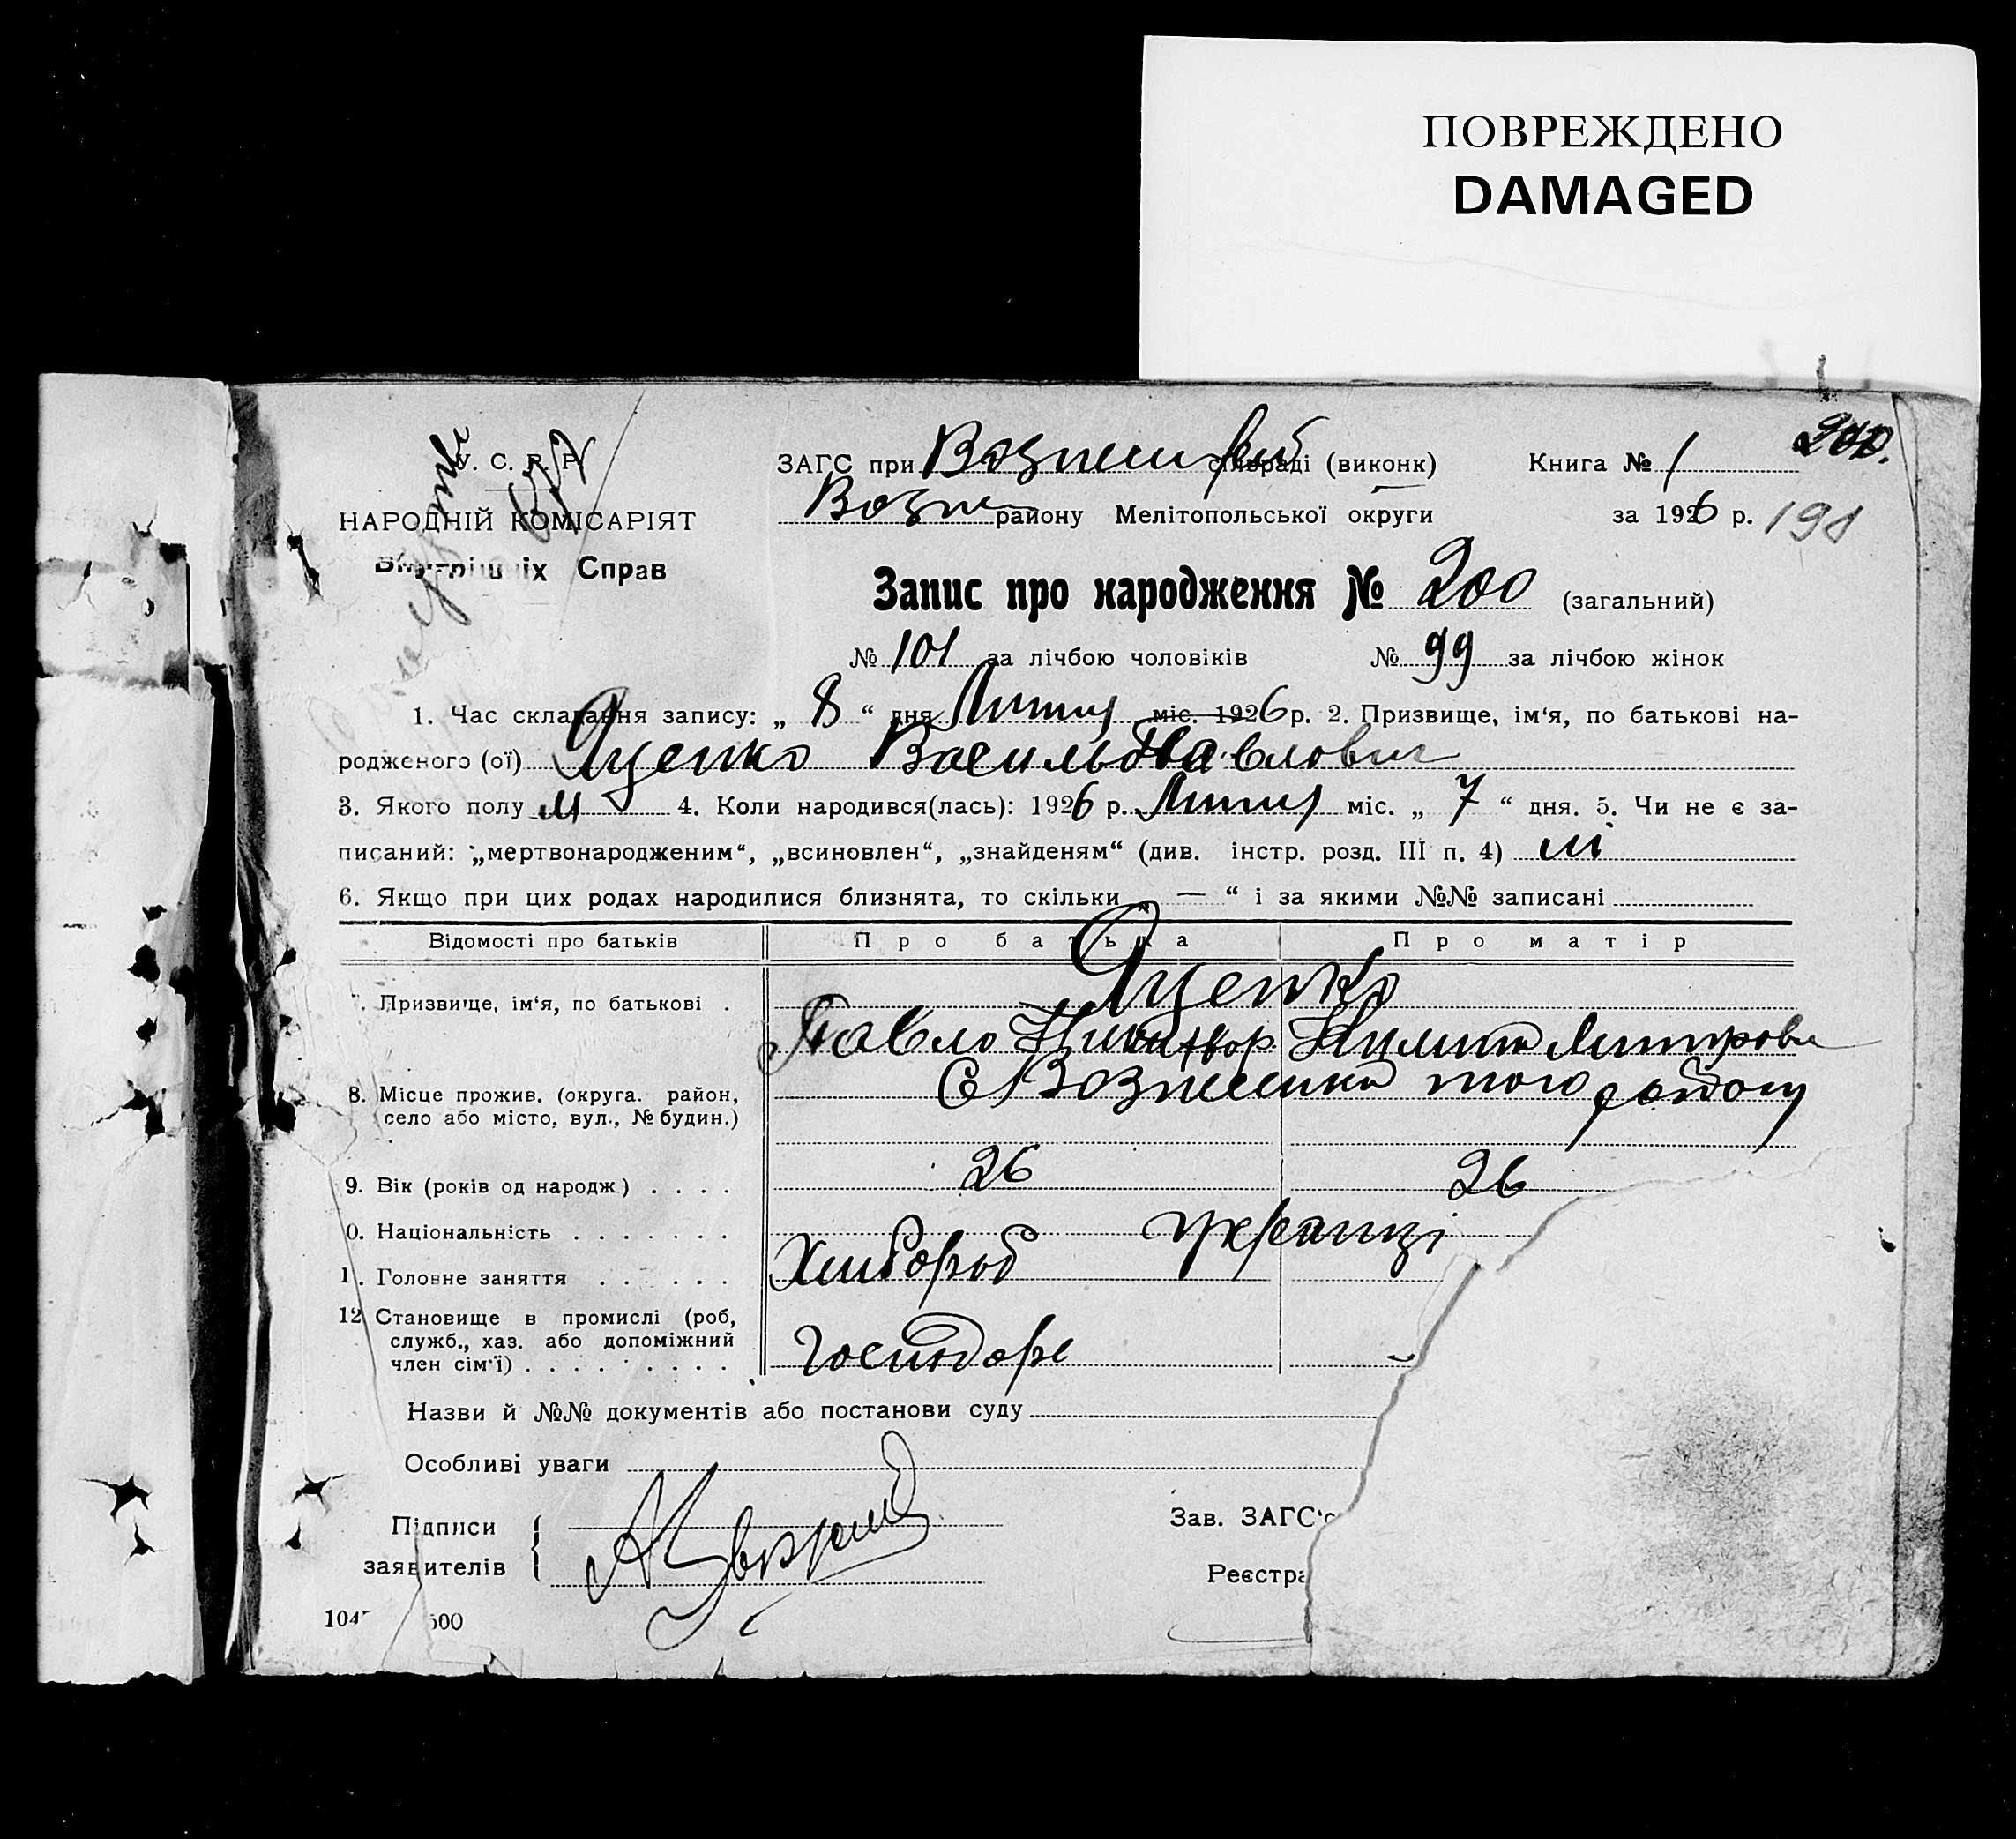 ПОВРЕЖДЕНО
DAMAGED
У. С. Р. Р.
НАРОДНІЙ КОМІСАРІЯТ
Внутрішніх Справ
ЗАГС при сільраді (виконк) Книга № 1 200.
Возн району Мелітопольської округи за 1926 р. 198
Запис про народження № 200 (загальний)
№ 101 за лічбою чоловіків № 99 за лічбою жінок
1. Час складання запису: „ 8 “ дня міс. 1926 р. 2. Призвище, ім‘я, по батькові на-
родженого (ої) Яценко Василь Павлович
3. Якого полу м 4. Коли народився(лась): 1926 р. міс. „ 7 “ дня. 5. Чи не є за-
писаний: „мертвонародженим“, „всиновлен“, „знайденям“ (див. інстр. розд. III п. 4) ні
6. Якщо при цих родах народилися близнята, то скільки „ — “ і за якими №№ записані
Відомості про батьків Про батька Про матір
7. Призвище, ім‘я, по батькові . Яценко
Павло
8. Місце прожив. (округа. район,
село або місто, вул., № будин.)
С Вознесенка того району
9. Вік (років од народж) . . . . 26 26
0. Національність . . . . . . . українці
1 . Головне заняття . . . . . . Хлібороб
12 Становище в промислі (роб,
служб., хаз. або допоміжний
член сім‘ї) . . . . . . . . . Господарь
Назви й №№ документів або постанови суду
Особливі уваги
Підписи
заявителів
Зав. ЗАГС‘о
Реєстра
104 500